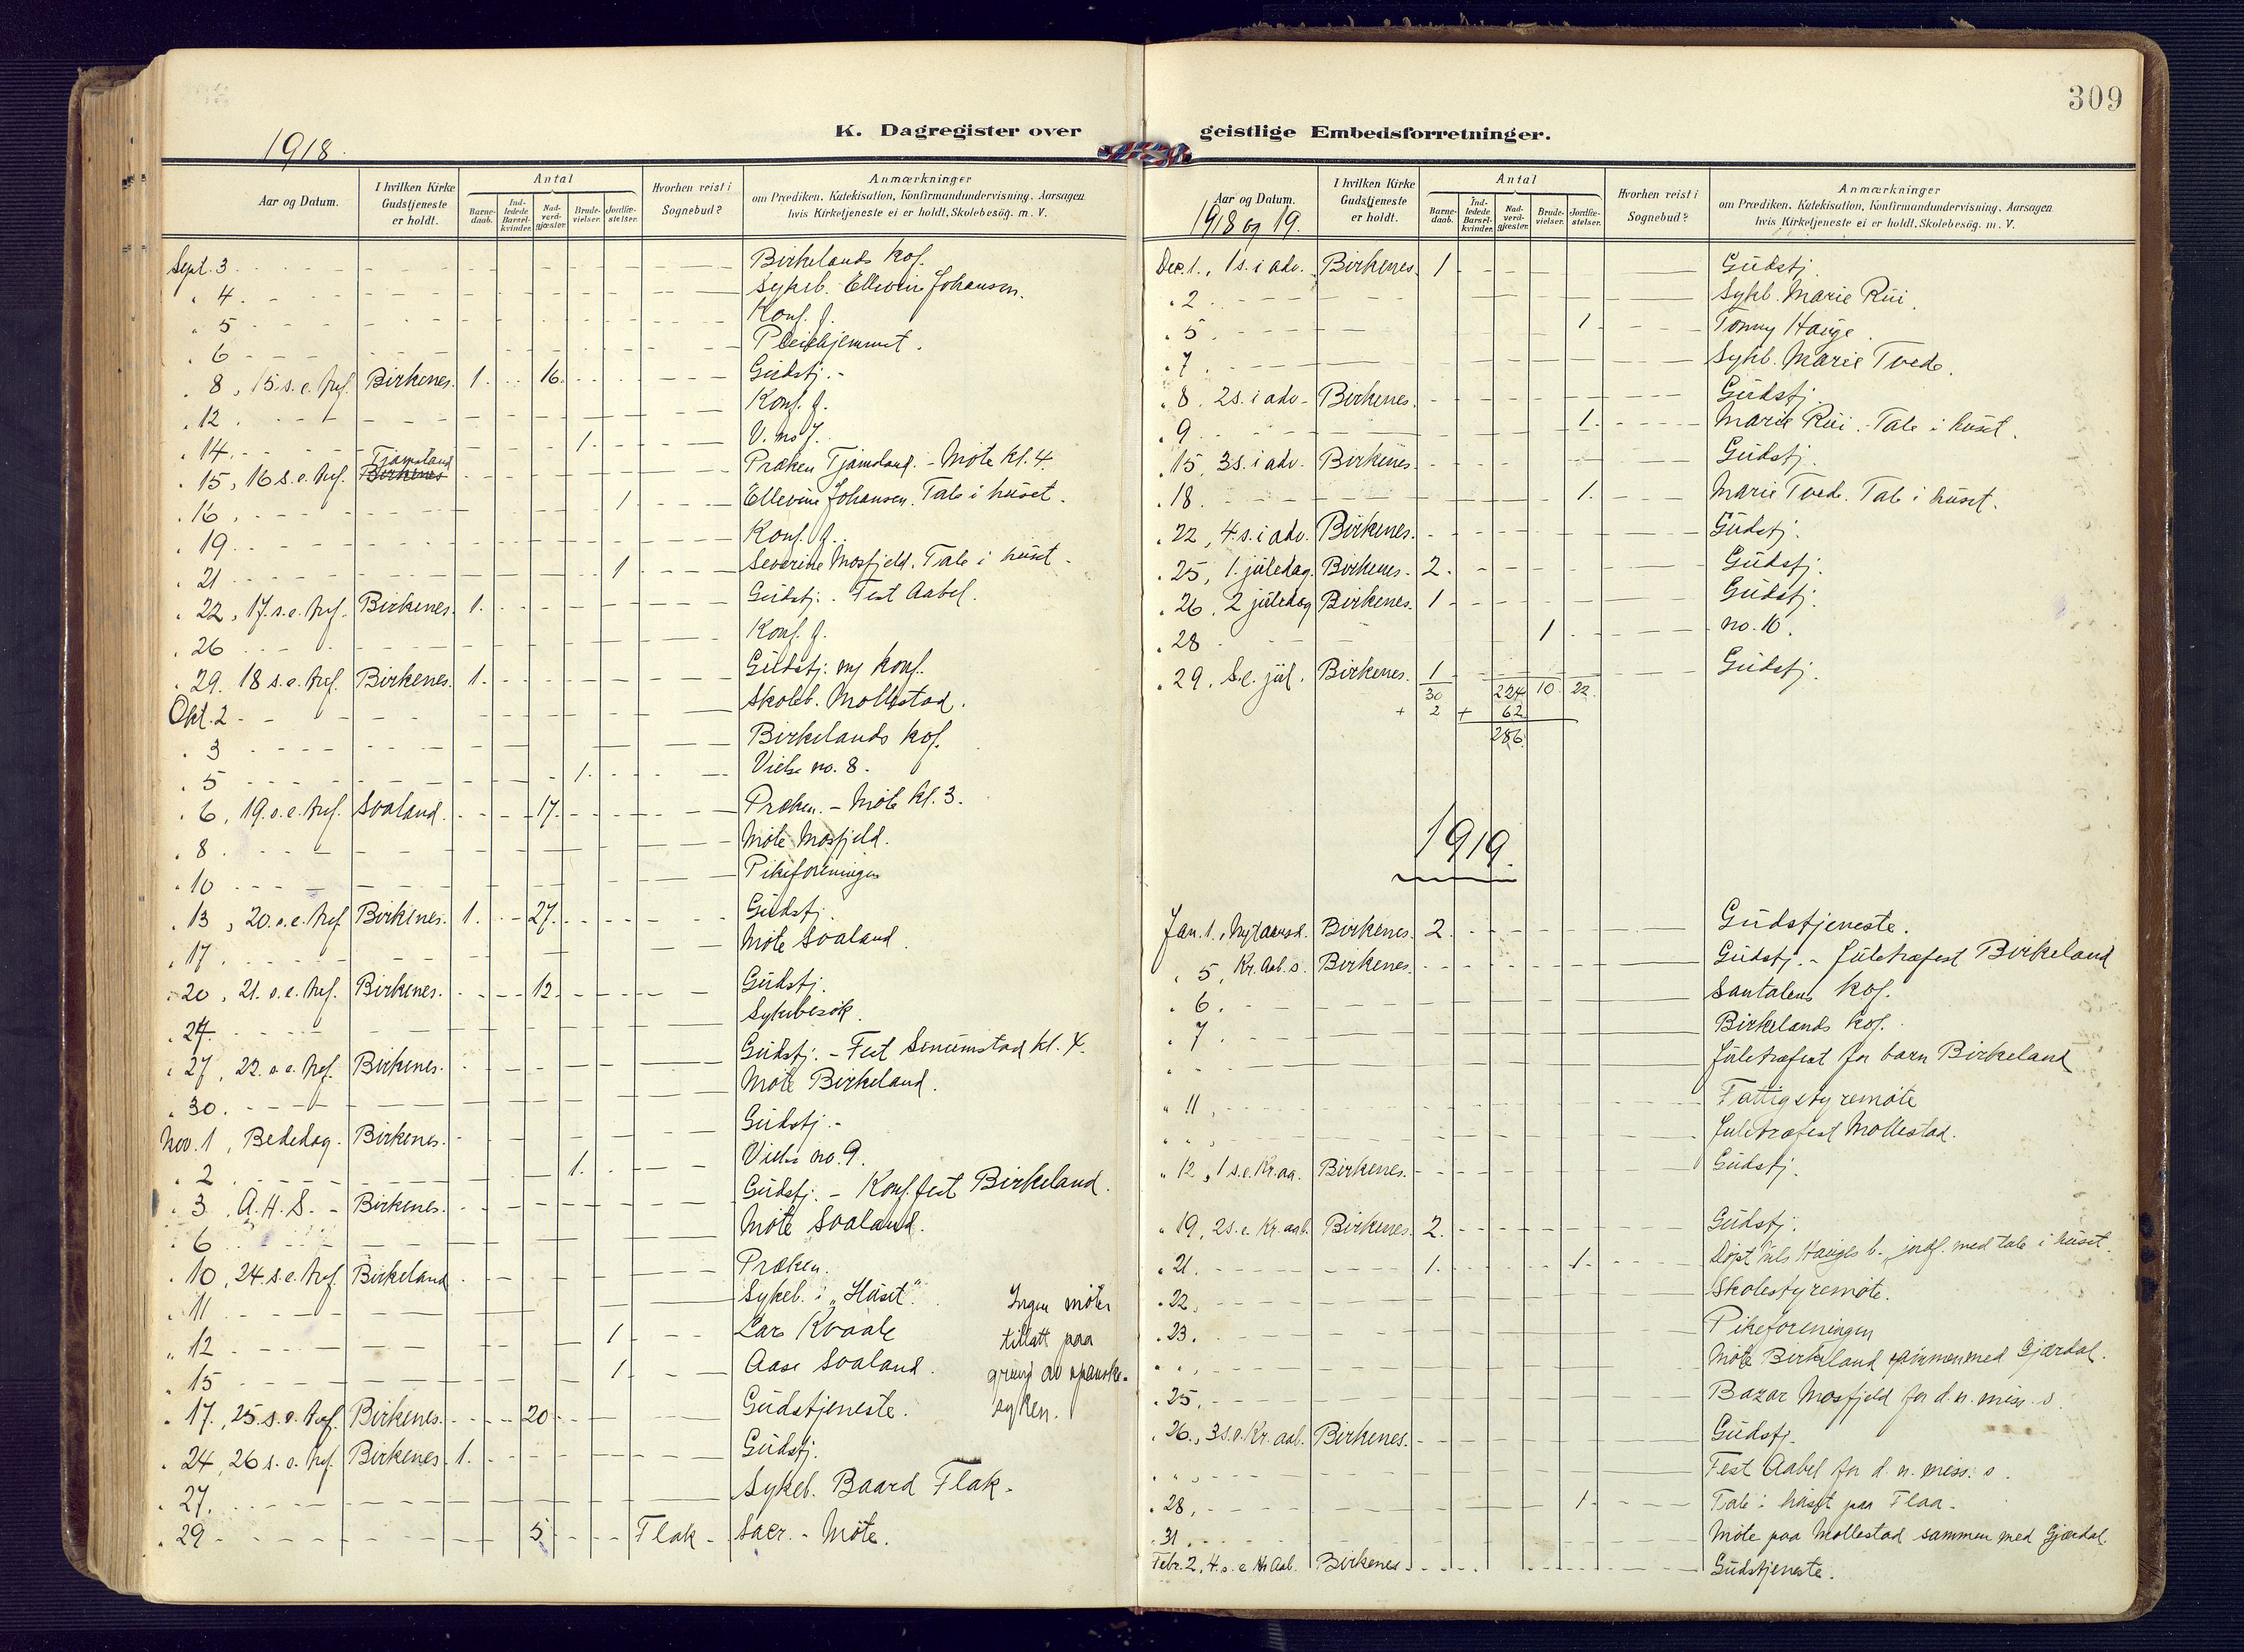 309
K. Dagregister over geistlige Embedsforretninger.
1918.
Aar og Datum.
I hvilken Kirke Gudstjeneste er holdt.
Antal
Barne-daab.
Ind-ledede Barsel-kvinder.
Nad-verd-gjæster.
Brude-vielser.
Jordfæ-stelser.
Hvorhen reist i Sognebud?
Anmærkninger
om Prædiken, Katekisation, Konfirmandundervisning. Aarsagen
hvis Kirketjeneste ei er holdt. Skolebesög. m. V.
Sept. 3 Birkelands kof.
" 4. Sykeb. Ellevine Johansen.
" 5 Konf. f.
" 6 Pleiehjemmet.
" 8, 15 s. e. tref. Birkenes. 1. 16. Gudstj.
" 12. Konf. f.
" 14. 1. V. no 7.
" 15, 16 s. e. tref. Tjamsland Birkenes Præken Tjamsland. - Møte kl. 4.
" 16, 1 Ellevine Johansen. Tale i huset.
" 19. Konf. f.
" 21 1 Severine Mosfjeld. Tale i huset.
" 22, 17. s. e. tref. Birkenes. 1. Gudstj. - Fest Aabel.
" 26 Konf. f.
" 29. 18 s. e. tref. Birkenes. 1. Gudstj. og konf.
Okt. 2 Skoleb. Mollestad.
" 3 Birkelands kof.
" 5 1. Vielse no. 8.
" 6, 19. s. e. tref. Svaland. 17. Præken. - Møte kl. 3.
" 8. Møte Mosfjeld.
" 10 Pikeforeningen
" 13, 20. s. e. tref. Birkenes. 1. 27. Gudstj.
" 17. Møte Svaland.
" 20, 21. s. e. tref. Birkenes. 12. Gudstj.
" 24. Sykebesøk.
" 27, 22. s. e. tref. Birkenes. Gudstj. - Fest Senumstad kl. 4.
" 30. Møte Birkeland.
Nov. 1, Bededag. Birkenes. Gudstj. -
" 2 1. Vielse no. 9.
" 3. A. H. S. - Birkenes. Gudstj. - Konf. fest Birkeland.
" 6 Møte Svaland.
" 10, 24. s. e. tref. Birkeland Præken.
" 11 Sykeb. i "Huset". Ingen møter
" 12 1 Lars Kvaale tillatt paa
" 15 1 Aase Svaland. grund av spanske-
" 17, 25. s. e. tref. Birkenes. 20 Gudstjeneste. syken.
" 24, 26 s. e. tref. Birkenes 1. Gudstj.
" 27. Sykeb. Baard Flak.
" 29 5 Flak Sacr. - Møte.
Aar og Datum.
1918 og 19.
I hvilken Kirke Gudstjeneste er holdt.
Antal
Barne-daab.
Ind-ledede Barsel-kvinder.
Nad-verd-gjæster.
Brude-vielser.
Jordfæ-stelser.
Hvorhen reist i Sognebud?
Anmærkninger
om Prædiken, Katekisation, Konfirmandundervisning. Aarsagen
hvis Kirketjeneste ei er holdt. Skolebesög. m. V.
Dec. 1., 1 s. i adv. Birkenes. 1 Gudstj.
" 2 Sykb. Marie Rui.
" 5. 1. Tomny Hauge.
" 7. Sykb. Marie Tvede.
" 8. 2 s. i adv. Birkenes. Gudstj.
" 9. 1. Marie Rui. Tale i huset.
" 15, 3 s. i adv. Birkenes. Gudstj.
" 18. 1. Marie Tvede. Tale i huset.
" 22, 4. s. i adv. Birkenes. Gudstj.
" 25, 1. juledag. Birkenes. 2. Gudstj.
" 26, 2 juledag Birkenes. 1 Gudstj.
" 28 1 no. 10.
" 29, S. e. jul. Birkenes. 1 Gudstj.
30 224 10. 22.
+ 2 + 62
286
1919.
Jan. 1., Nytaarsd. Birkenes. 2. Gudstjeneste.
" 5, Kr. Aab. s. Birkenes. Gudstj. - Juletræfest Birkeland
" 6. Santalens kof.
" 7. Birkelands kof.
" Juletræfest for barn Birkeland
" 11, Fattigstyremøte
" " , Juletræfest Mollestad.
" 12, 1 s. e. Kr. aa. Birkenes. Gudstj.
" 19, 2 s. e. Kr. aab. Birkenes. 2. Gudstj.
" 21. 1. 1. Døpt Nils Hauges b., jordf. med tale i huset.
" 22. Skolestyremøte.
" 23. Pikeforeningen
" " , Møte Birkeland sammen med Gjærdal.
" 25. Bazar Mosfjeld for d. n. miss. s.
" 26., 3 s. e. Kr. aab. Birkenes. Gudstj.
" " , Fest Aabel for d. n. miss. s.
" 28, 1. Tale i huset paa Flaa.
" 31. Møte paa Mollestad sammen med Gjærdal.
Febr. 2, 4. s. e. Kr. Aab. Birkenes. Gudstjeneste.